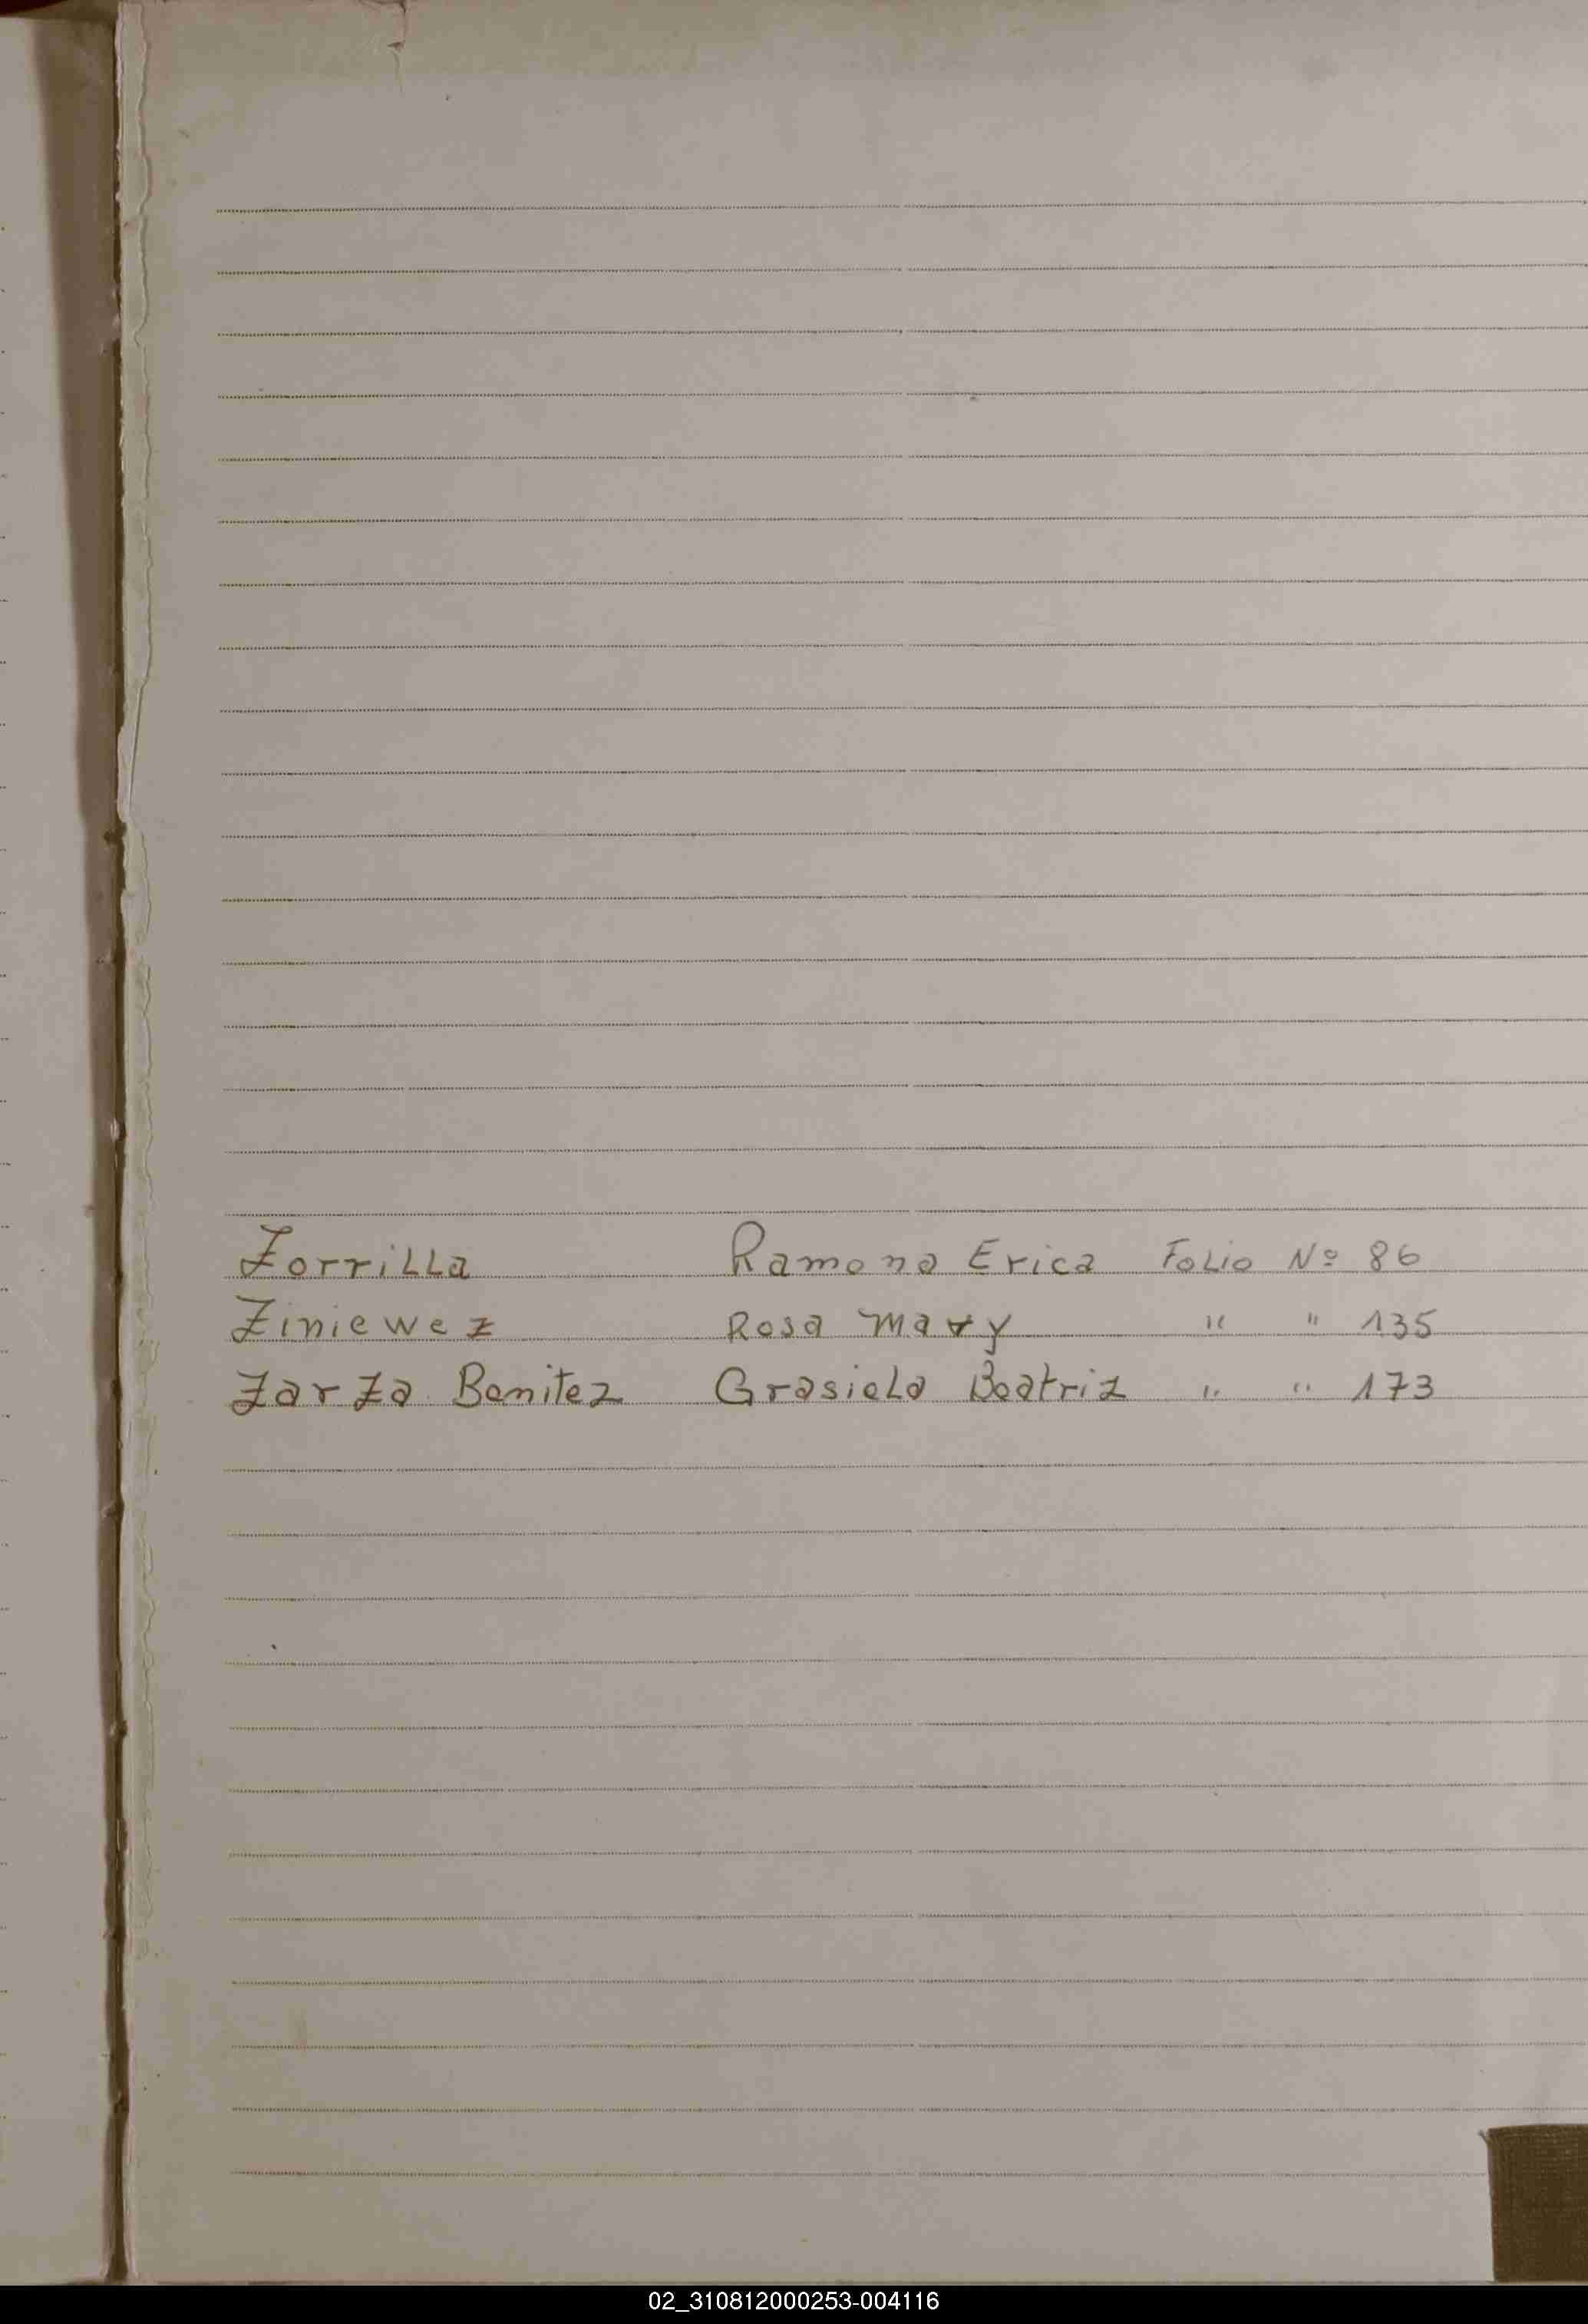 Zorrilla Ramona Erica Folio Nº 86
Ziniewez Rosa Mary " " 135
Zarza Benitez Grasiela Beatriz " " 173
02_310812000253-004116